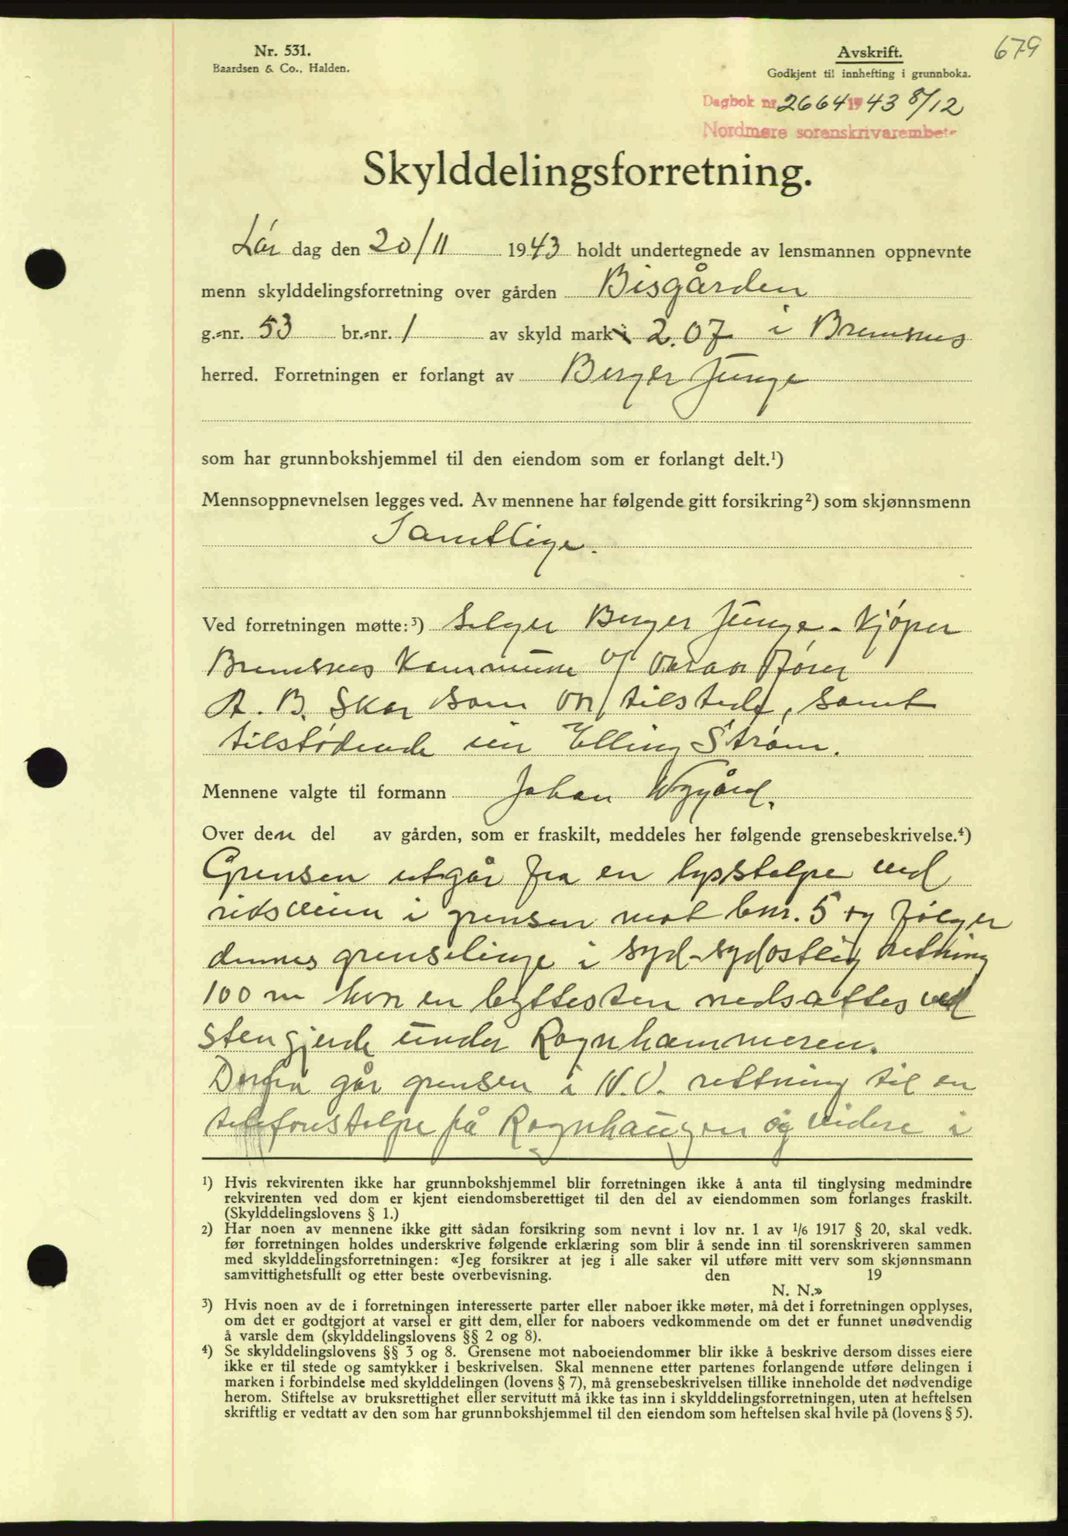 679
Nr. 531.
Baardsen & Co., Halden.
Avskrift.
Godkjent til innhefting i grunnboka.
Dagbok nr. 2664 1943 8/12
Nordmøre sorenskrivarembete
Skylddelingsforretning.
Lør dag den 20/11 1943 holdt undertegnede av lensmannen oppnevnte
menn skylddelingsforretning over gården Bisgården
g.-nr. 53 br.-nr. 1 av skyld mark 2.07 i Bremsnes
herred. Forretningen er forlangt av Berger Junge
som har grunnbokshjemmel til den eiendom som er forlangt delt.¹)
Mennsoppnevnelsen legges ved. Av mennene har følgende gitt forsikring²) som skjønnsmenn
Samtlige.
Ved forretningen møtte:³) Selger Berger Junge - Kjøper
Bremsnes Kommune v/
A. B. Skar som var tilstede, samt
tilstødende eier Elling Strøm.
Mennene valgte til formann Johan
Over den del av gården, som er fraskilt, meddeles her følgende grensebeskrivelse.⁴)
Grensen utgår fra en lysstolpe ved
ridsveien i grensen mot bnr. 5 og følger
dennes grenselinje i syd-sydostlig retning
100 m hvor en byttesten nedsattes ved
stengjerde under Rognhammeren.
Derfra går grensen i N.V. rettning til en
telefonstolpe på Rognhaugen og videre i
¹) Hvis rekvirenten ikke har grunnbokshjemmel blir forretningen ikke å anta til tinglysing medmindre
rekvirenten ved dom er kjent eiendomsberettiget til den del av eiendommen som forlanges fraskilt.
(Skylddelingslovens § 1.)
²) Har noen av mennene ikke gitt sådan forsikring som nevnt i lov nr. 1 av 1/6 1917 § 20, skal vedk.
før forretningen holdes underskrive følgende erklæring som blir å sende inn til sorenskriveren sammen
med skylddelingsforretningen: «Jeg forsikrer at jeg i alle saker vil utføre mitt verv som skjønnsmann
samvittighetsfullt og etter beste overbevisning. den 19
N. N.»
³) Hvis noen av de i forretningen interesserte parter eller naboer ikke møter, må det i forretningen opplyses,
om det er godtgjort at varsel er gitt dem, eller for naboers vedkommende om det er funnet unødvendig
å varsle dem (skylddelingslovens §§ 2 og 8).
⁴) Se skylddelingslovens §§ 3 og 8. Grensene mot naboeiendommer blir ikke å beskrive dersom disses eiere
ikke er til stede og samtykker i beskrivelsen. Skal mennene etter partenes forlangende utføre delingen i
marken i forbindelse med skylddelingen (lovens § 7), må grensebeskrivelsen tillike inneholde det nødvendige
herom. Stiftelse av bruksrettighet eller servitutt må ikke tas inn i skylddelingsforretningen, uten at heftelsen
skriftlig er vedtatt av den som har grunnbokshjemmel til den eiendom som heftelsen skal hvile på (lovens § 5).